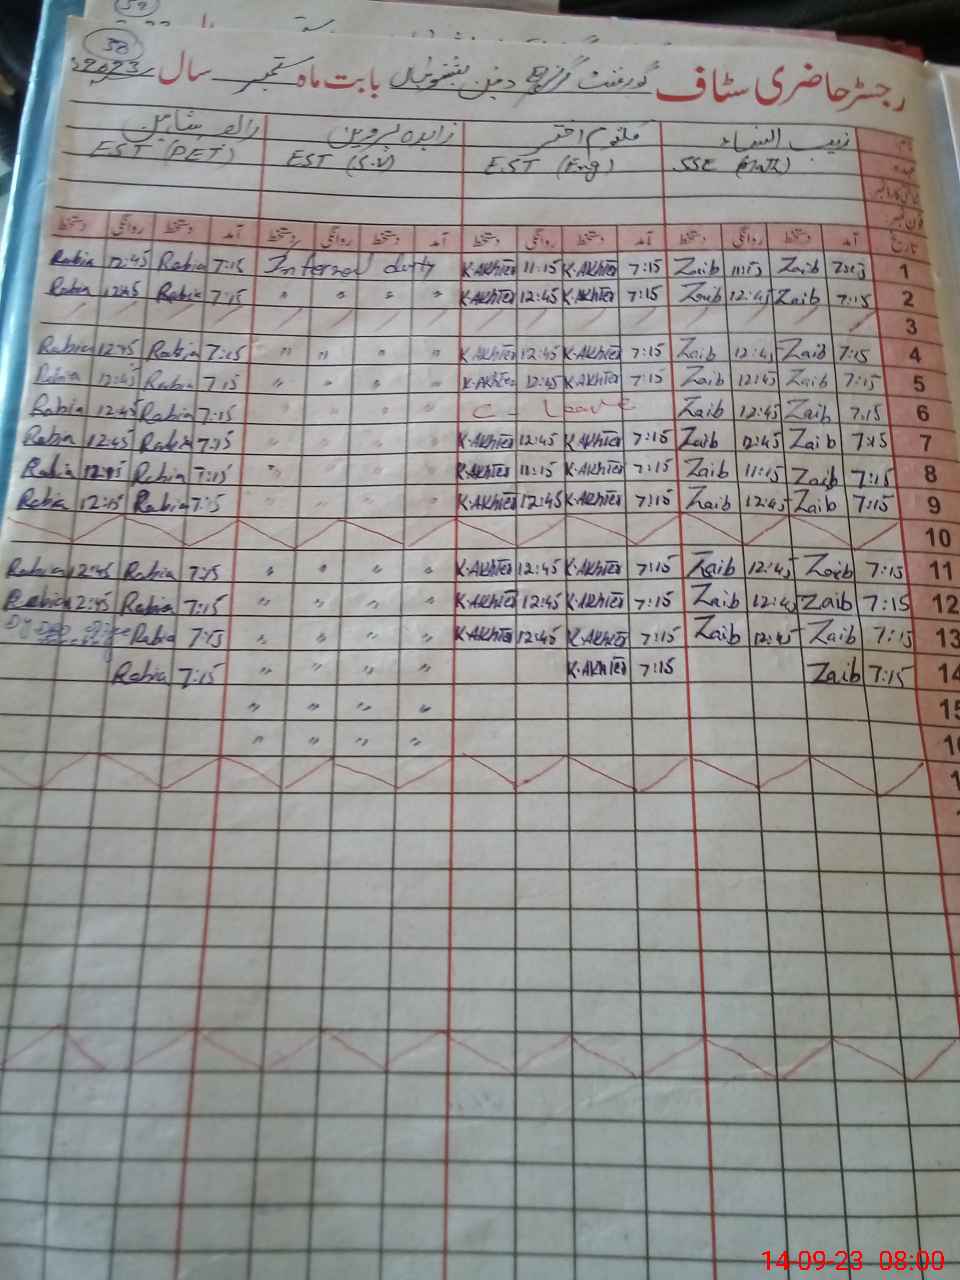 38
رجسٹر حاضری سٹاف گورنمنٹ گرلز بابت ماہ ستمبر سال 2023
زیب النساء کلثوم اختر زاہدہ پروین رابعہ شاہین
SSE (Math) EST (Eng) EST (S.V) EST (PET)
تاریخ آمد دستخط روانگی دستخط آمد دستخط روانگی دستخط آمد دستخط روانگی دستخط آمد دستخط روانگی دستخط
Rabia 12:45 Rabia 7:15 Internal duty K.AKhter 11:15 K.AKhter 7:15 Zaib 11:15 Zaib 7:15 1
Rabia 12:45 Rabia 7:15 " " " " K.AKhter 12:45 K.AKhter 7:15 Zaib 12:45 Zaib 7:15 2
3
Rabia 12:45 Rabia 7:15 " " " " K.AKhter 12:45 K.AKhter 7:15 Zaib 12:45 Zaib 7:15 4
Rabia 12:45 Rabia 7:15 " " " " K.AKhter 12:45 K.AKhter 7:15 Zaib 12:45 Zaib 7:15 5
Rabia 12:45 Rabia 7:15 " " " " C - Leave Zaib 12:45 Zaib 7:15 6
Rabia 12:45 Rabia 7:15 " " " " K.AKhter 12:45 K.AKhter 7:15 Zaib 12:45 Zaib 7:15 7
Rabia 12:15 Rabia 7:15 " " " " K.AKhter 11:15 K.AKhter 7:15 Zaib 11:15 Zaib 7:15 8
Rabia 12:15 Rabia 7:15 " " " " K.AKhter 12:45 K.AKhter 7:15 Zaib 12:45 Zaib 7:15 9
10
Rabia 12:45 Rabia 7:15 " " " " K.AKhter 12:45 K.AKhter 7:15 Zaib 12:45 Zaib 7:15 11
Rabia 12:45 Rabia 7:15 " " " " K.AKhter 12:45 K.AKhter 7:15 Zaib 12:45 Zaib 7:15 12
Rabia 7:15 " " " " K.AKhter 12:45 K.AKhter 7:15 Zaib 12:45 Zaib 7:15 13
Rabia 7:15 " " " " K.AKhter 7:15 Zaib 7:15 14
" " " " 15
" " " "
14-09-23 08:00